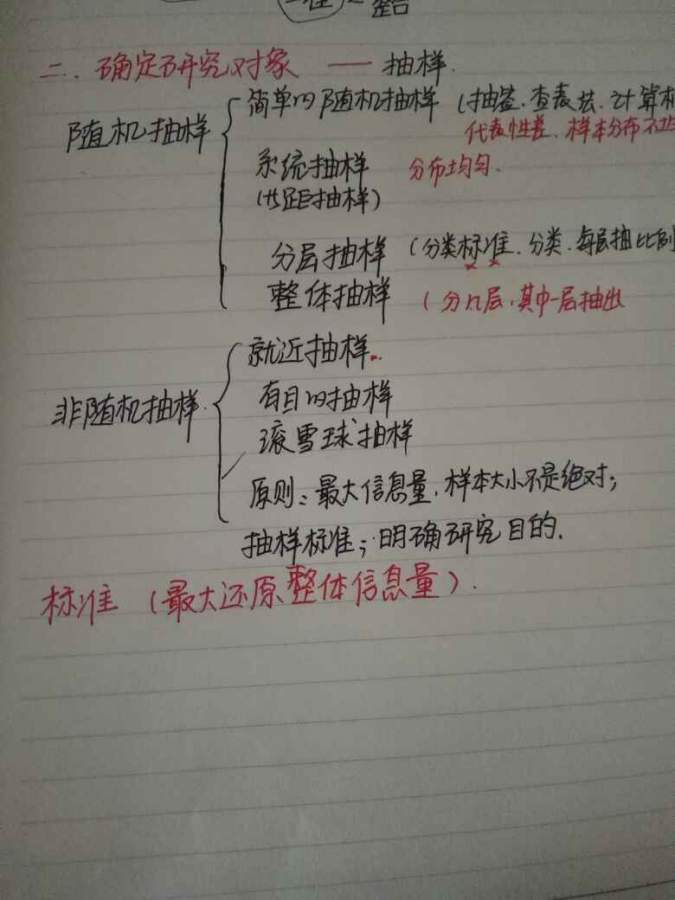 二、确定研究对象 —— 抽样.
随机抽样
简单的随机抽样 (抽签、查表法、计算机
代表性差、样本分布不
系统抽样 分布均匀.
(等距抽样)
分层抽样 (分类标准、分类、每层抽比例
整体抽样 (分几层,其中一层抽出
非随机抽样.
就近抽样.
有目的抽样
滚雪球抽样
原则:最大信息量,样本大小不是绝对;
抽样标准;明确研究目的.
标准 (最大还原整体信息量).